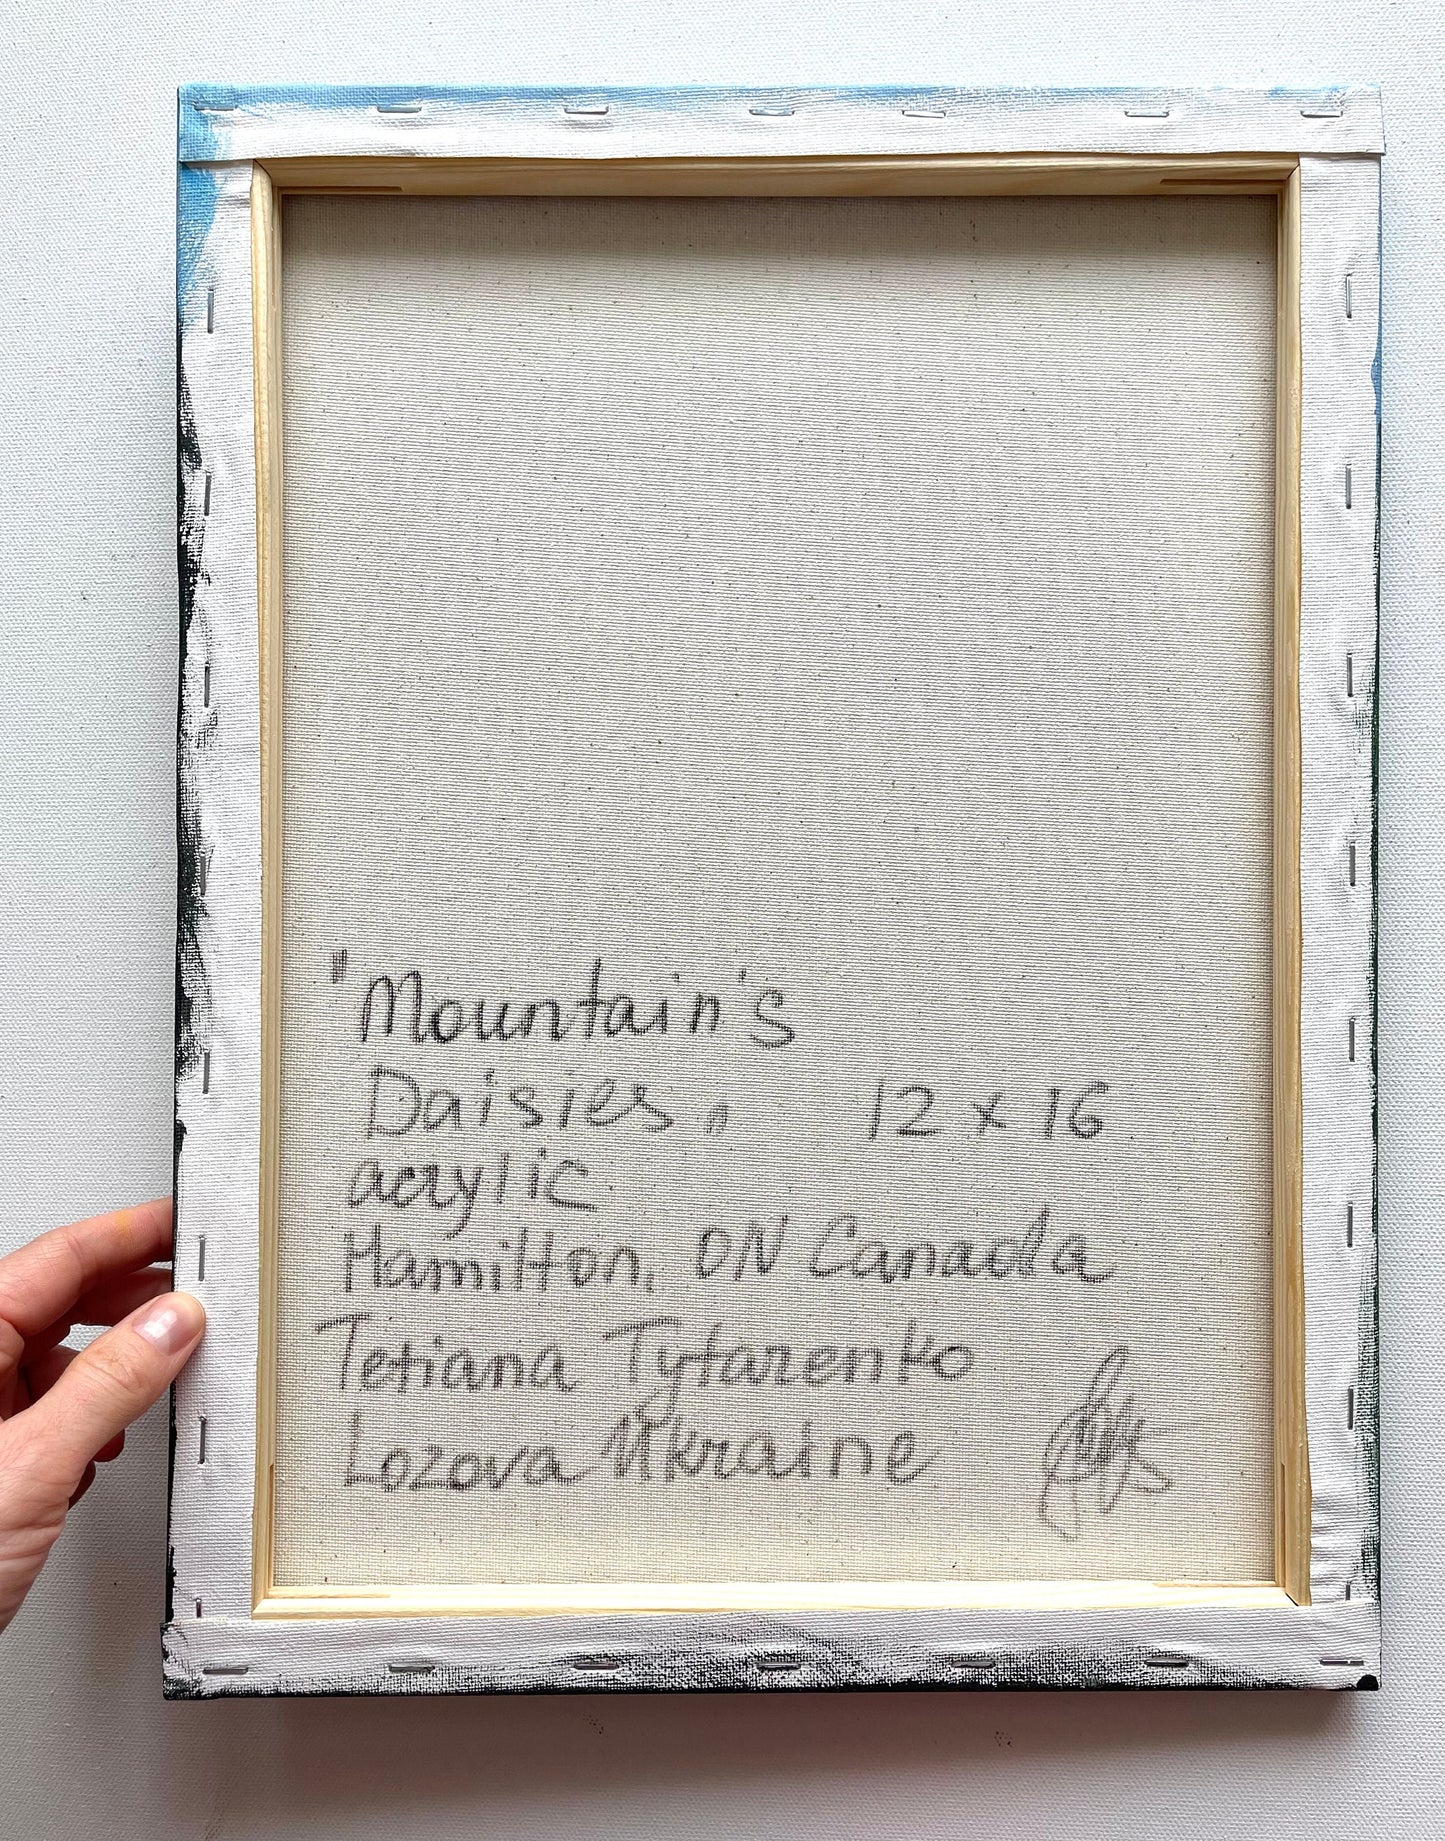 "Mountain's
Daisies„ 12 x 16
acrylic
Hamilton, ON Canada
Tetiana Tytarenko
Lozova Ukraine